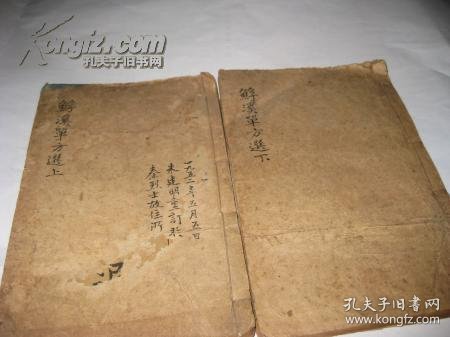 Kongfz.com
孔夫子旧书网
鱘溪單方選上
一九五二年五月五日
朱建明重訂於
秦烈士故住所
鱘溪單方選下
孔夫子旧书网
www.kongfz.com